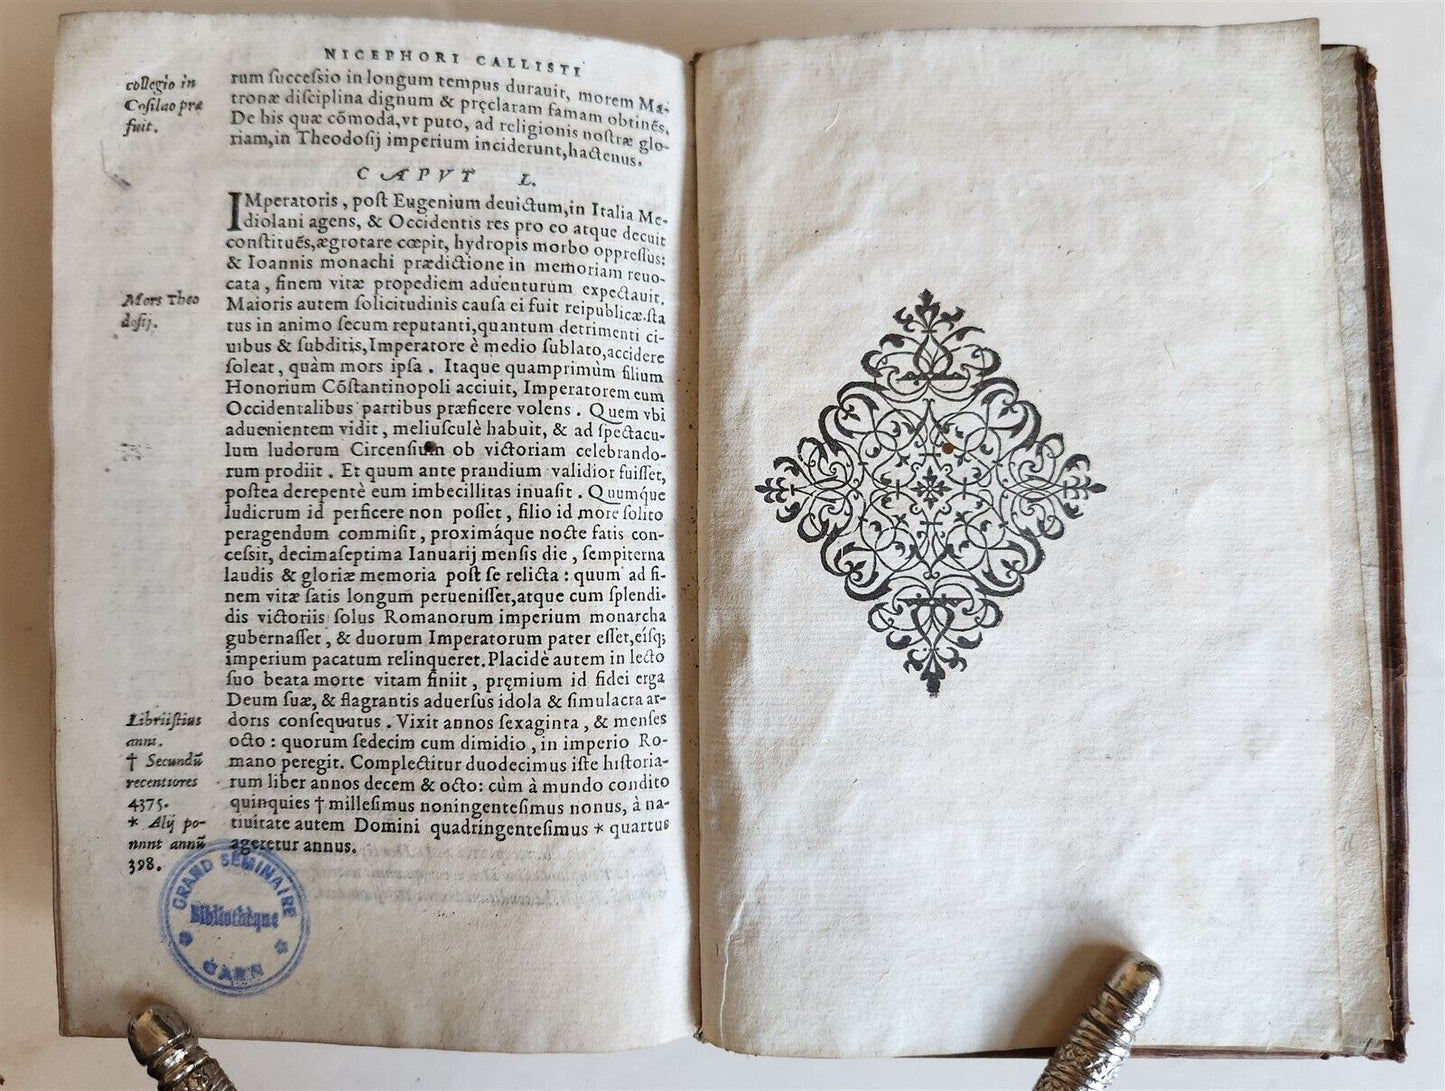 NICEPHORI CALLISTI
collegio in
Cõsilao præ
fuit.
rum ſucceſsio in longum tempus durauit, morem Ma-
tronæ diſciplina dignum & pręclaram famam obtinẽs.
De his quæ cõmoda,vt puto, ad religionis noſtræ glo-
riam,in Theodoſij imperium inciderunt,hactenus.
CAPVT L.
IMperatoris, poſt Eugenium deuictum,in Italia Me-
diolani agens, & Occidentis res pro eo atque decuit
conſtituẽs,ægrotare cœpit, hydropis morbo oppreſſus:
& Ioannis monachi prædictione in memoriam reuo-
cata, finem vitæ propediem aduenturum expectauit.
Mors Theo
doſij.
Maioris autem ſolicitudinis cauſa ei fuit reipublicæ.ſta
tus in animo ſecum reputanti,quantum detrimenti ci-
uibus & ſubditis,Imperatore è medio ſublato,accidere
ſoleat, quàm mors ipſa. Itaque quamprimùm filium
Honorium Cõſtantinopoli acciuit, Imperatorem eum
Occidentalibus partibus præficere volens. Quem vbi
aduenientem vidit, meliuſculè habuit, & ad ſpectacu-
lum ludorum Circenſium ob victoriam celebrando-
rum prodiit. Et quum ante prandium validior fuiſſet,
poſtea derepentè eum imbecillitas inuaſit. Quumque
ludicrum id perficere non poſſet, filio id more ſolito
peragendum commiſit, proximáque nocte fatis con-
ceſsit, decimaſeptima Ianuarij menſis die, ſempiterna
laudis & gloriæ memoria poſt ſe relicta: quum ad fi-
nem vitæ ſatis longum perueniſſet,atque cum ſplendi-
dis victoriis ſolus Romanorum imperium monarcha
gubernaſſet, & duorum Imperatorum pater eſſet,eiſq;
imperium pacatum relinqueret.Placidè autem in lecto
ſuo beata morte vitam finiit, pręmium id fidei erga
Deum ſuæ, & flagrantis aduerſus idola & ſimulacra ar-
doris conſequutus. Vixit annos ſexaginta, & menſes
octo: quorum ſedecim cum dimidio, in imperio Ro-
mano peregit. Complectitur duodecimus iſte hiſtoria-
rum liber annos decem & octo: cùm à mundo condito
quinquies † milleſimus noningenteſimus nonus, à na-
tiuitate autem Domini quadringenteſimus * quartus
ageretur annus.
Libri iſtius
anni.
† Secundũ
recentiores
4375.
* Alij po-
nunt annũ
398.
GRAND SÉMINAIRE
Bibliothèque
CAEN